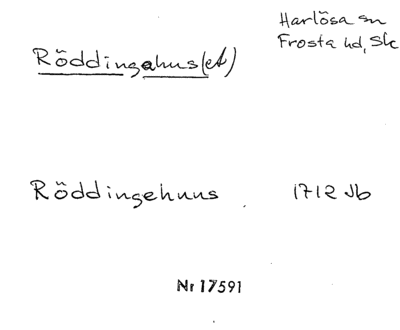 Harlösa sn
Frosta hd, Sk
Röddingahus(et)
Röddingehuus 1712 Jb
Nr 17591